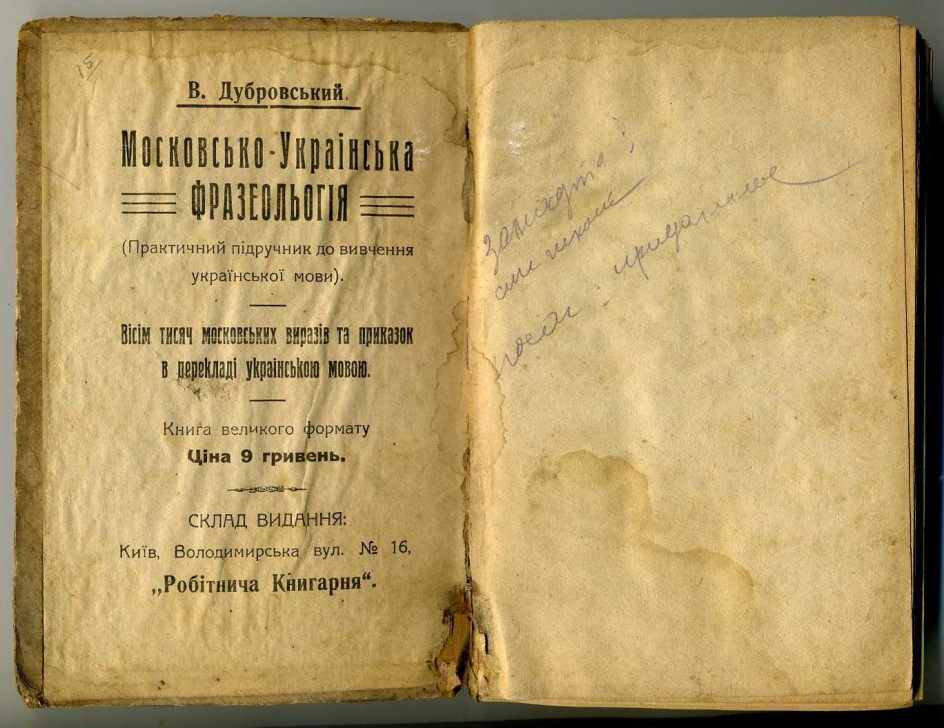 15
В. Дубровський.
Московсько-Українська
ФРАЗЕОЛЬОГІЯ
(Практичний підручник до вивчення
української мови).
Вісім тисяч московських виразів та приказок
в перекладі українською мовою.
Книга великого формату
Ціна 9 гривень.
СКЛАД ВИДАННЯ:
Київ, Володимирська вул. № 16,
„Робітнича Книгарня“.